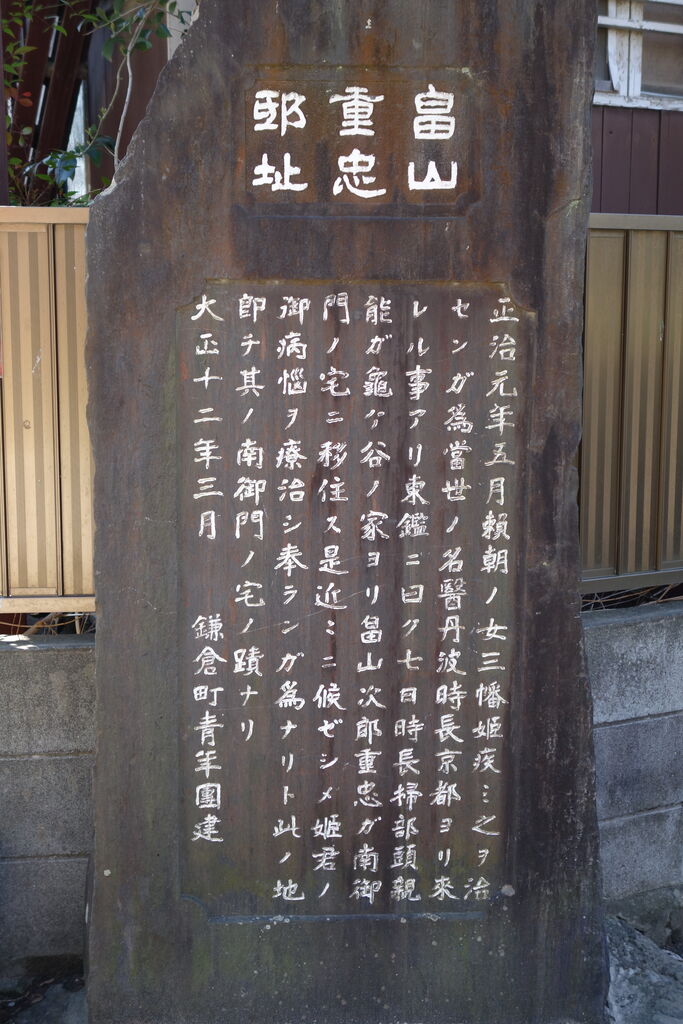 畠山
重忠
邸址
正治元年五月頼朝ノ女三幡姫疾ミ之ヲ治
センガ為當世ノ名醫丹波時長京都ヨリ来
レル事アリ東鑑ニ曰ク七日時長掃部頭親
能ガ龜ケ谷ノ家ヨリ畠山次郎重忠ガ南御
門ノ宅ニ移住ス是近ミニ候ゼシメ姫君ノ
御病惱ヲ療治シ奉ランガ為ナリト此ノ地
即チ其ノ南御門ノ宅ノ蹟ナリ
大正十二年三月 鎌倉町青年團建